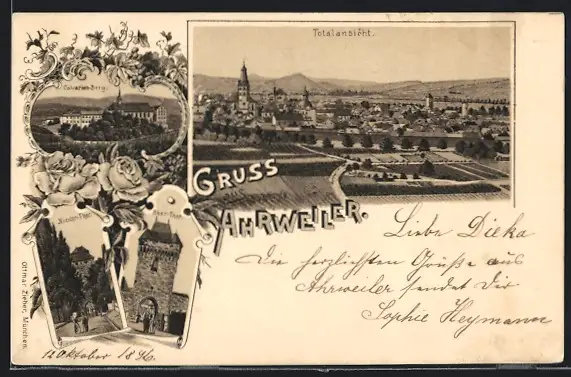 Totalansicht.
Calvarien-Berg.
GRUSS
AUS
AHRWEILER.
Nieder-Thor
Ahr-Thor
Liebe Dieka
Die herzlichsten Grüße aus
Ahrweiler sendet Dir
Sophie Heymann
12 Oktober 1896.
Ottmar Zieher, München.